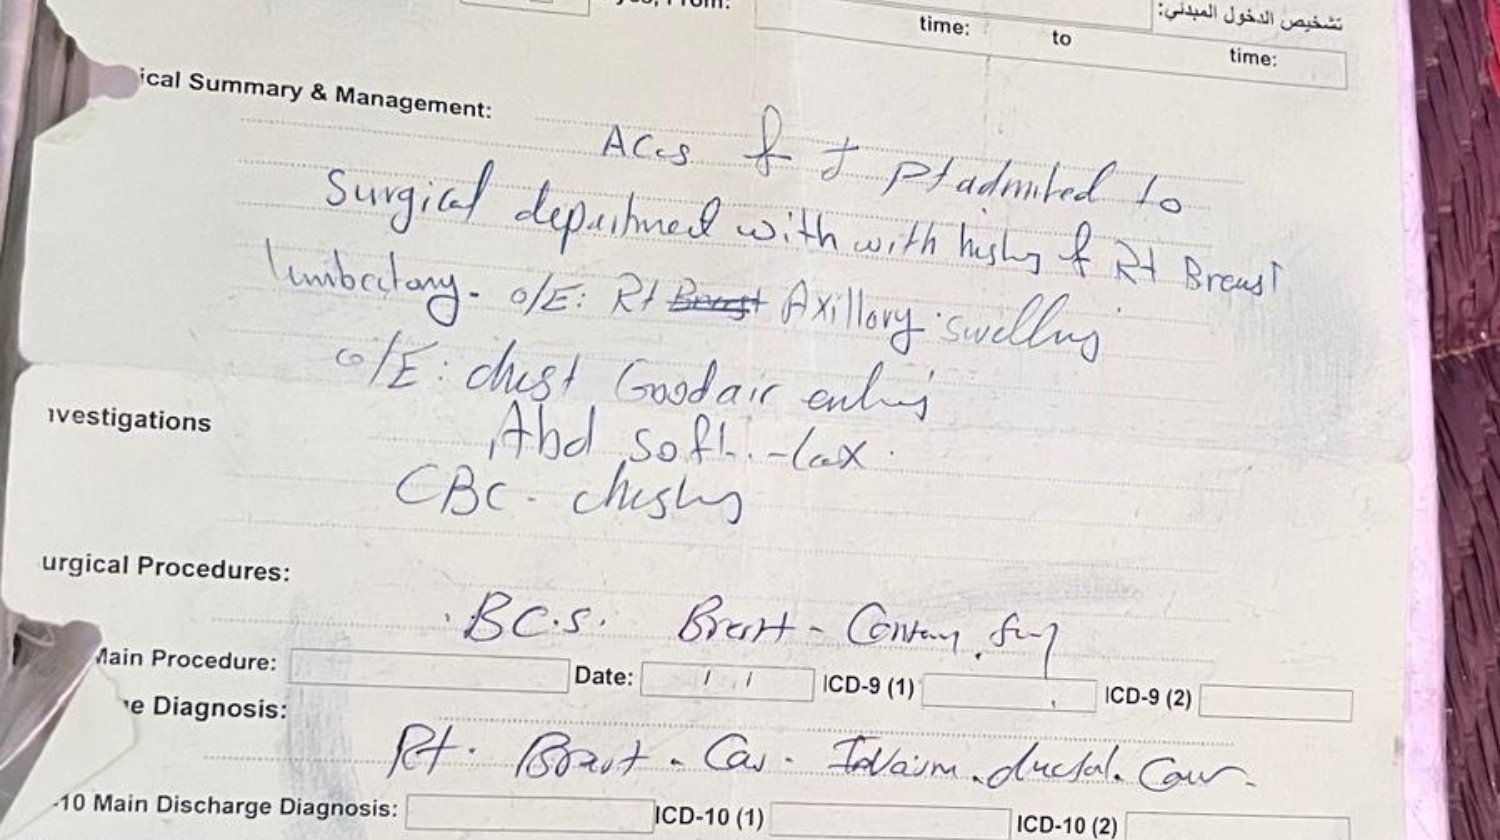 تشخيص الدخول المبدئي:
time: to time:
ical Summary & Management:
Pt admited to
Surgical department with with history of Rt Breast
lumbectomy - O/E: Rt Axillary swelling
O/E: chest Good air entry
nvestigations
Abd soft - lax
CBC -
urgical Procedures:
B.C.S. Breast -
Main Procedure: Date: / / ICD-9 (1) ICD-9 (2)
e Diagnosis:
Rt. Breast - Ca. ductal.
-10 Main Discharge Diagnosis: ICD-10 (1) ICD-10 (2)